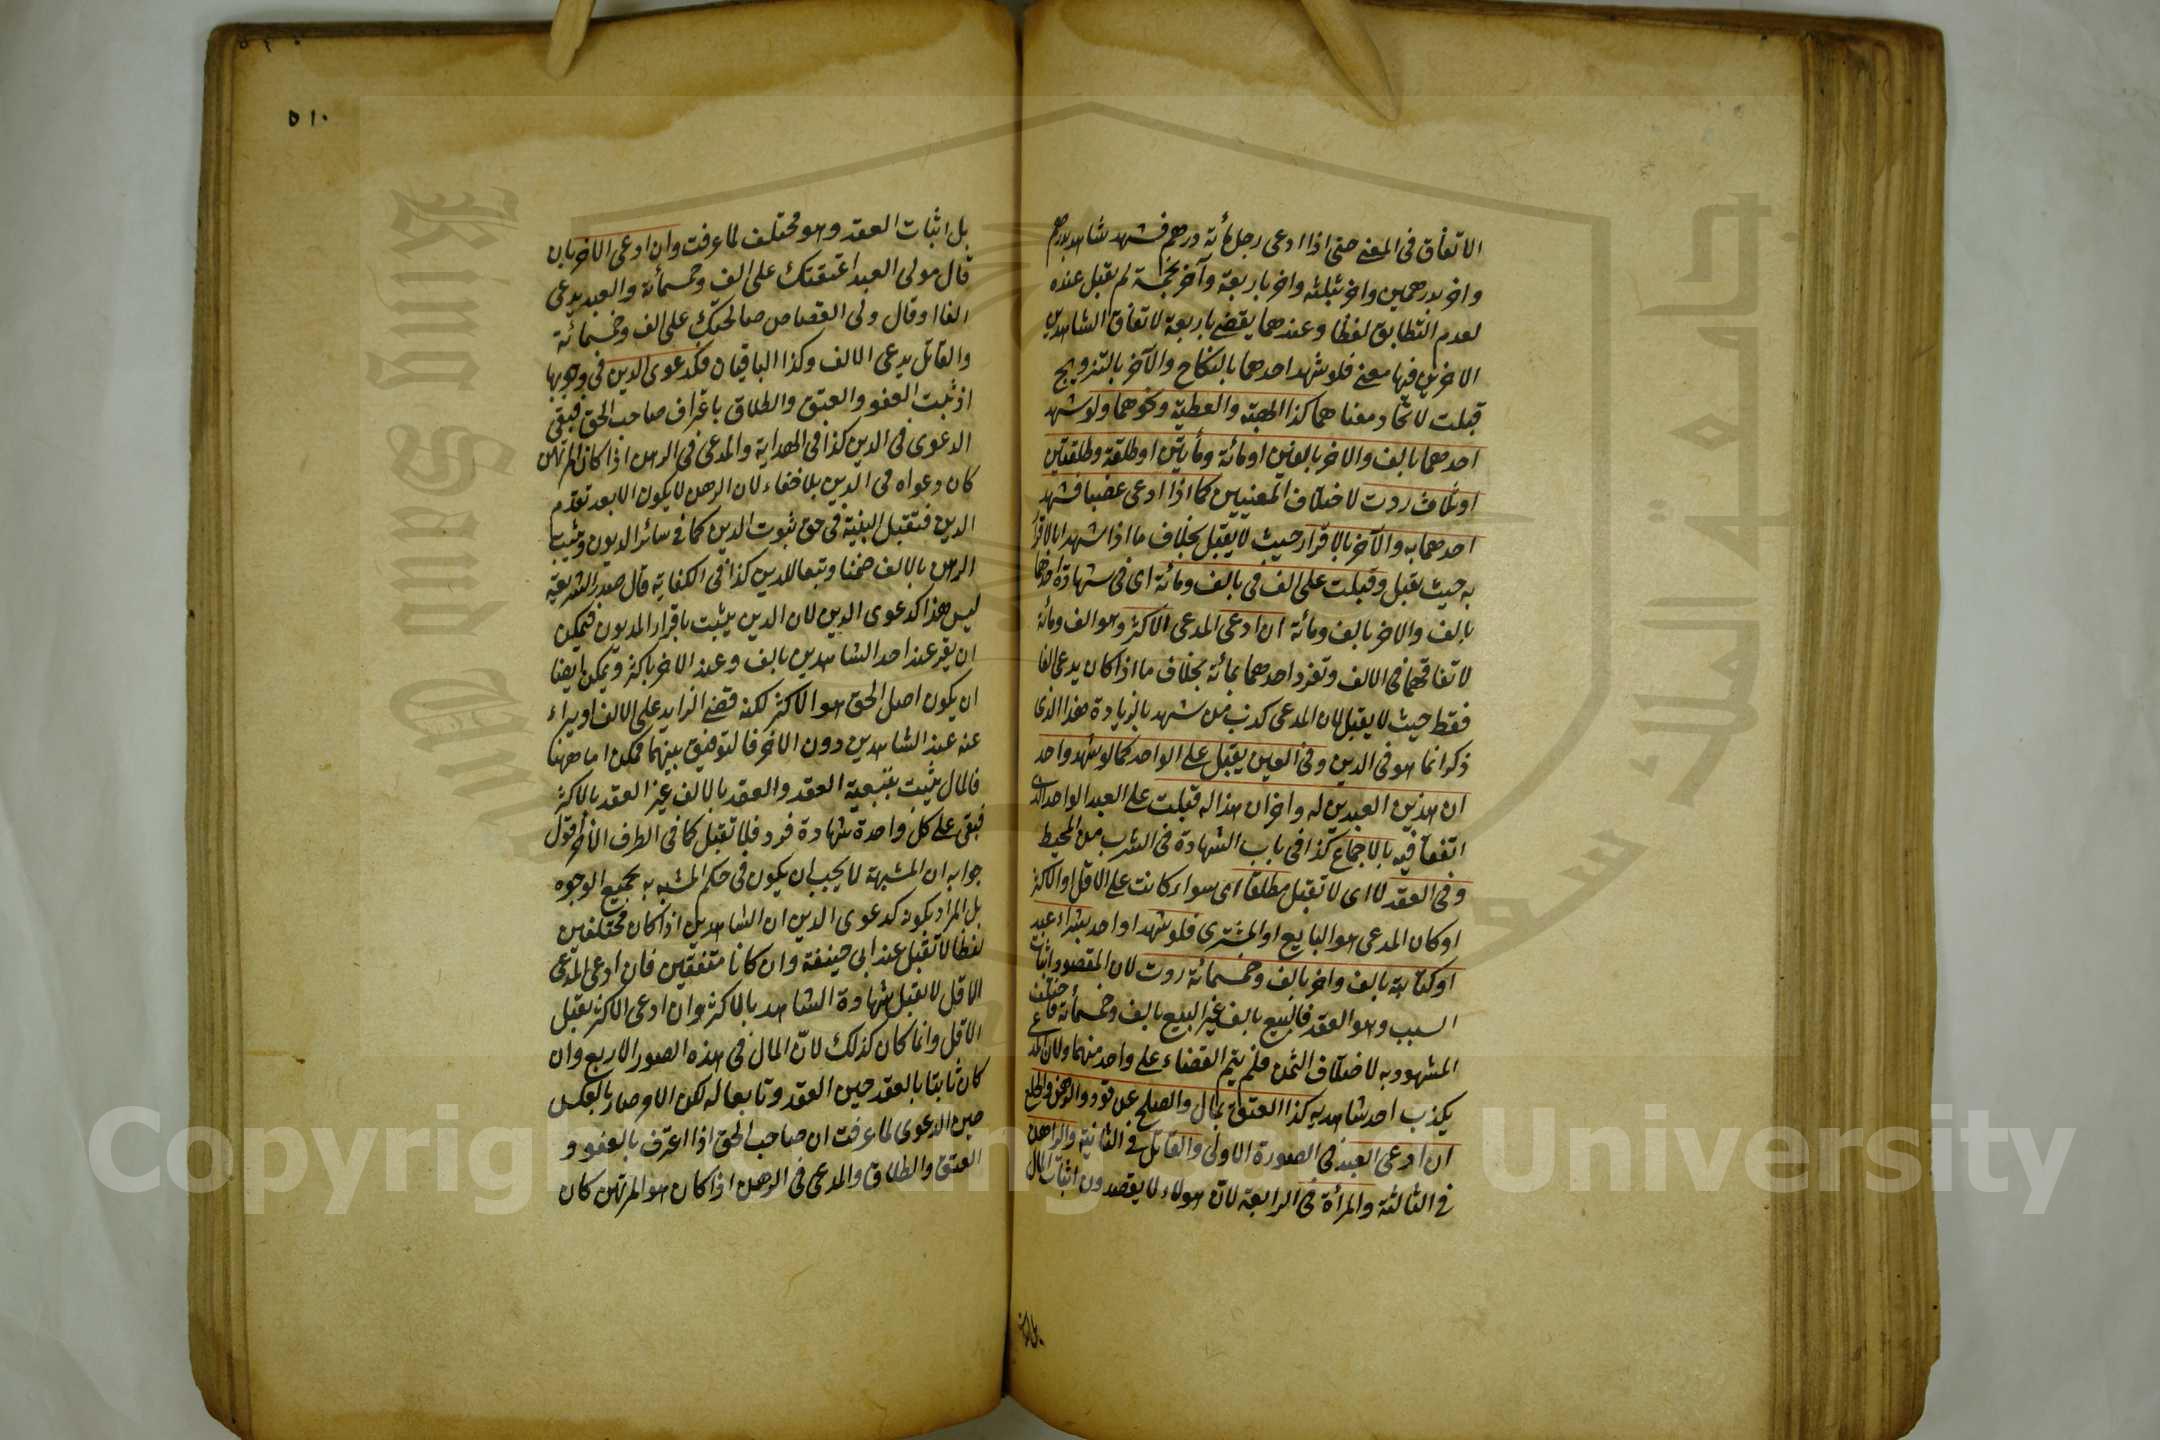 الاتفاق فى المعنے حتى اذا ادعى رجل مائة درهم فشهد شاهد بدرهم
واخر بدرهمين واخر بثلثه واخر باربعة وآخر بخمسة لم يقبل عنده
لعدم التطابق لفظا وعندهما يقضے باربعة لاتفاق الشاهدين
الاخرين فيها معنے فلو شهد احدهما بالنكاح والآخر بالتزويج
قبلت لاتحاد معناهما كذا الهبة والعطية ونحوهما ولو شهد
احدهما بالف والاخر بالفين او مائة ومأتين او طلقة وطلقتين
او ثلاث ردت لاختلاف المعنيين كما اذا ادعى غصبا فشهد
احدهما به والآخر بالاقرار حيث لا يقبل بخلاف ما اذا شهدا بالاقرار
به حيث يقبل وقبلت على الف فى بالف ومائة اى فى شهادة احدهما
بالف والاخر بالف ومائة ان ادعى المدعى الاكثر وهو الف ومائة
لاتفاقهما فى الالف وتفرد احدهما بمائة بخلاف ما اذا كان يدعى الفا
فقط حيث لا يقبل لان المدعى كذب من شهد بالزيادة هذا الذى
ذكر انما هو فى الدين وفى العين يقبل على الواحد كما لو شهد واحد
ان هذين العبدين له واخر ان هذا له قبلت على العبد الواحد الذى
اتفقا فيه بالاجماع كذا فى باب الشهادة فى الشرب من المحيط
وفى العقد لا اى لا تقبل مطلقا اى سواء كانت على الاقل او الاكثر
او كان المدعى هو البايع او المشترى فلو شهد واحد بشراء عبد
او كتابة بالف واخر بالف وخمسمائة ردت لان المقصود اثبات
السبب وهو العقد فالبيع بالف غير البيع بالف وخمسمائة فاختلف
المشهود به لاختلاف الثمن فلم يتم القضاء على واحد منهما ولان المدعى
يكذب احد شاهديه كذا العتق بمال والصلح عن قود والرهن والخلع
ان ادعى العبد فى الصورة الاولى والقاتل فى الثانية والراهن
فى الثالثة والمرأة فى الرابعة لان هولاء لا يقصدون اثبات المال
بل اثبات
٥١٠
بل اثبات العقد وهو مختلف لما عرفت وان ادعى الاخر بان
قال مولى العبد اعتقتك على الف وخمسمائة والعبد يدعى
الفا او قال ولى القصاص صالحتك على الف وخمسمائة
والقاتل يدعى الالف وكذا الباقيان فكدعوى الدين فى وجوبها
اذ ثبت العفو والعتق والطلاق باعتراف صاحب الحق فبقى
الدعوى فى الدين كذا فى الهداية والمدعى فى الرهن اذا كان المرتهن
كان دعواه فى الدين بلا خفاء لان الرهن لا يكون الا بعد تقدم
الدين فتقبل البينة فى حق ثبوت الدين كما فى سائر الديون ويثبت
الرهن بالالف ضمنا وتبعا للدين كذا فى الكفاية قال صدر الشريعة
ليس هذا كدعوى الدين لان الدين يثبت باقرار المديون فيمكن
ان يقر عند احد الشاهدين بالف وعند الاخر باكثر ويمكن ايضا
ان يكون اصل الحق هو الاكثر لكنه قضے الزايد على الالف او يبراء
عنه عند الشاهدين دون الاخر فالتوفيق بينهما ممكن اما ههنا
فالمال يثبت بتبعية العقد والعقد بالالف غير العقد بالاكثر
فبقى على كل واحدة شهادة فرد فلا تقبل كما فى الطرف الآخر اقول
جوابه ان المشبهة لا يجب ان يكون فى حكم المشبه به بجميع الوجوه
بل المراد بكونه كدعوى الدين ان الشاهدين اذا كان مختلفين
لفظا لا تقبل عند ابى حنيفة وان كانا متفقين فان ادعى المدعى
الاقل لا يقبل شهادة الشاهد بالاكثر وان ادعى الاكثر يقبل
الاقل وانما كان كذلك لان المال فى هذه الصور الاربع وان
كان ثابتا بالعقد حين العقد وتابعا له لكن الامر صار بالعكس
حين الدعوى لما عرفت ان صاحب الحق اذا اعترف بالعفو و
العتق والطلاق والمدعى فى الرهن اذا كان هو المرتهن كان
Copyright © King Saud University
King Saud University
جامعة الملك سعود